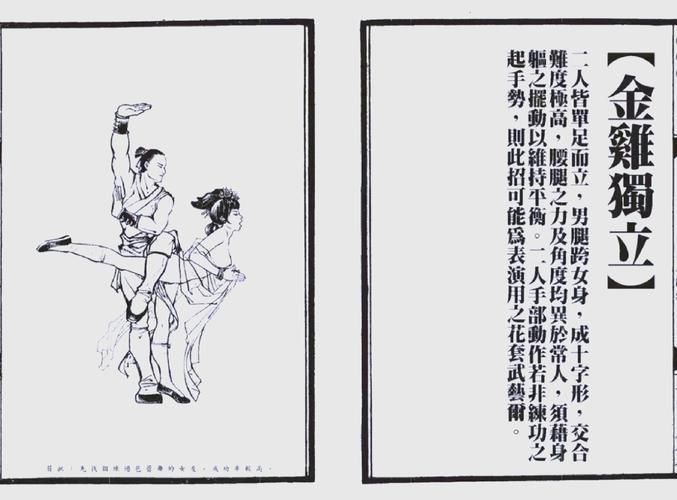 【金雞獨立】
二人皆單足而立，男腿跨女身，成十字形，交合
難度極高，腰腿之力及角度均異於常人，須藉身
軀之擺動以維持平衡。二人手部動作若非練功之
起手勢，則此招可能爲表演用之花套武藝爾。